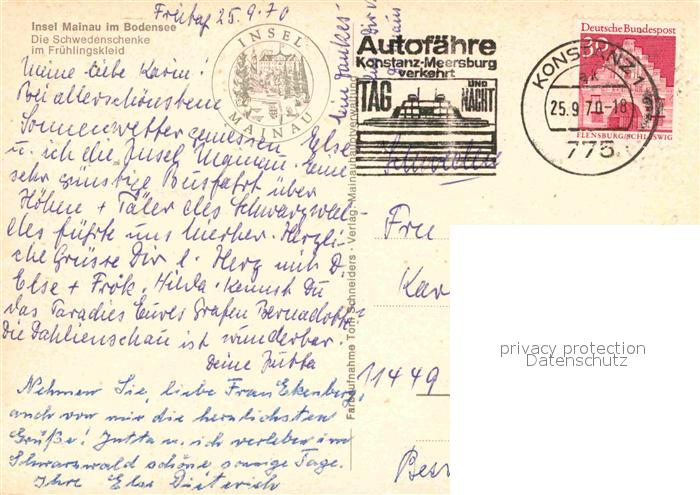 Insel Mainau im Bodensee
Die Schwedenschenke
im Frühlingskleid
Freitag 25.9.70
Meine liebe Karin!
Bei allerschönstem
Sonnenwetter genießen Else
u. ich die Insel Mainau. Eine
sehr günstige Busfahrt über
Höhen + Täler des Schwarzwal-
des führte uns hierher. Herzli-
che Grüsse Dir l. Herz mit D.
Else + Frök. Hilda. Kennst Du
das Paradies Eures Grafen Bernadotte?
Die Dahlienschau ist wunderbar.
Deine Jutta
Nehmen Sie, liebe Frau Ekenberg,
auch von mir die herzlichsten
Grüße! Jutta u. ich verleben im
Schwarzwald schöne sonnige Tage.
Ihre Else Dieterich
INSEL
MAINAU
Farbaufnahme Toni Schneiders · Verlag: Mainaubildverwaltung
Autofähre
Konstanz-Meersburg
verkehrt
TAG UND NACHT
KONSTANZ 1
25.9.70-18
775
Deutsche Bundespost
30
FLENSBURG/SCHLESWIG
Schweden
Kar
11449
privacy protection
Datenschutz